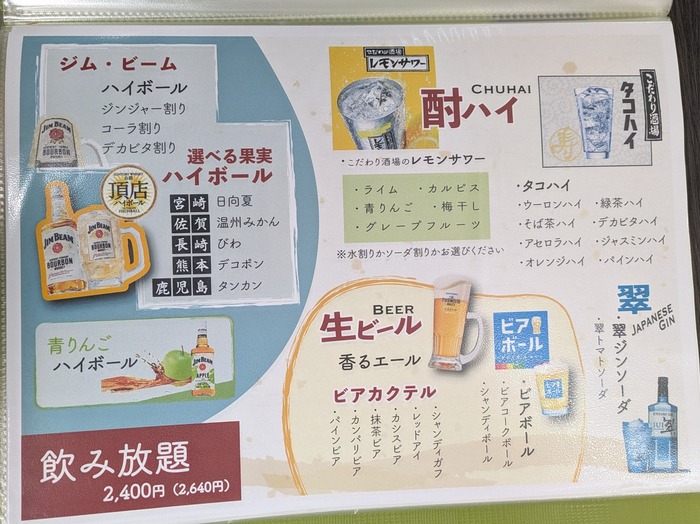 ジム・ビーム
ハイボール
ジンジャー割り
コーラ割り
デカビタ割り
選べる果実
ハイボール
頂店
ハイボール
宮崎 日向夏
佐賀 温州みかん
長崎 びわ
熊本 デコポン
鹿児島 タンカン
JIM BEAM
BOURBON
青りんご
ハイボール
JIM BEAM
APPLE
飲み放題
2,400円（2,640円）
こだわり酒場
レモンサワー
酎ハイ
CHUHAI
・こだわり酒場のレモンサワー
・ライム ・カルピス
・青りんご ・梅干し
・グレープフルーツ
※水割りかソーダ割りかお選びください
こだわり酒場
タコハイ
・タコハイ
・ウーロンハイ ・緑茶ハイ
・そば茶ハイ ・デカビタハイ
・アセロラハイ ・ジャスミンハイ
・オレンジハイ ・パインハイ
BEER
生ビール
香るエール
ビアカクテル
・シャンディガフ
・レッドアイ
・カシスビア
・抹茶ビア
・カンパリビア
・パインビア
ビアボール
・ビアボール
・ビアコークボール
・シャンディボール
翠
JAPANESE
GIN
・翠ジンソーダ
・翠トマトソーダ